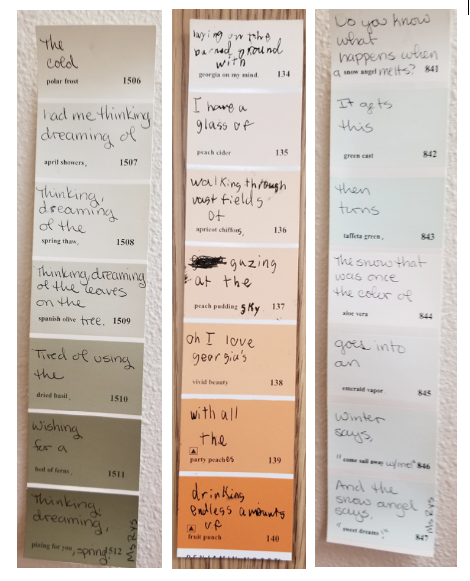 The
cold
polar frost 1506
had me thinking
dreaming of
april showers, 1507
Thinking,
dreaming
of the
spring thaw, 1508
Thinking, dreaming
of the leaves
on the
spanish olive tree. 1509
Tired of using
the
dried basil, 1510
wishing
for a
bed of ferns, 1511
Thinking,
dreaming,
pining for you, spring 1512
Ms Rys
laying on the
burned ground
with
georgia on my mind 134
I have a
glass of
peach cider 135
walking through
vast fields
of
apricot chiffon, 136
gazing
at the
peach pudding sky 137
oh I love
georgia's
vivid beauty 138
with all
the
party peaches 139
drinking
endless amounts
of
fruit punch 140
Do you know
what
happens when
a snow angel melts? 841
It gets
this
green cast 842
then
turns
taffeta green, 843
The snow that
was once
the color of
aloe vera 844
goes into
an
emerald vapor. 845
Winter
says,
"come sail away w/me" 846
And the
snow angel
says,
"sweet dreams" 847
Ms Rys